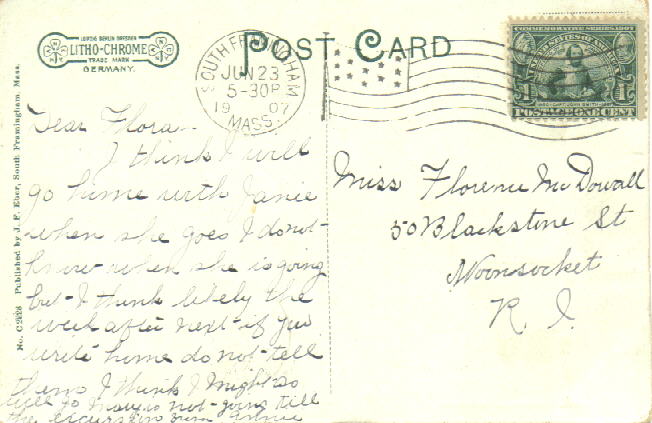 LEIPZIG BERLIN DRESDEN
LITHO-CHROME
TRADE MARK
GERMANY.
POST CARD
SOUTH FRAMINGHAM
JUN 23
5-30P
1907
MASS.
COMMEMORATIVE SERIES 1907
UNITED STATES OF AMERICA
1580 CAPT. JOHN SMITH 1631
1 1
POSTAGE ONE CENT
No. C2628 Published by J. F. Eber, South Framingham, Mass.
Dear Flora-
I think I will
go home with Janie
when she goes I do not
know when she is going
but I think likely the
week after next if you
write home do not tell
them I think I might as
well go Mary is not going till
the excursion from
Miss Florence McDowall
50 Blackstone St
Woonsocket
R. I.